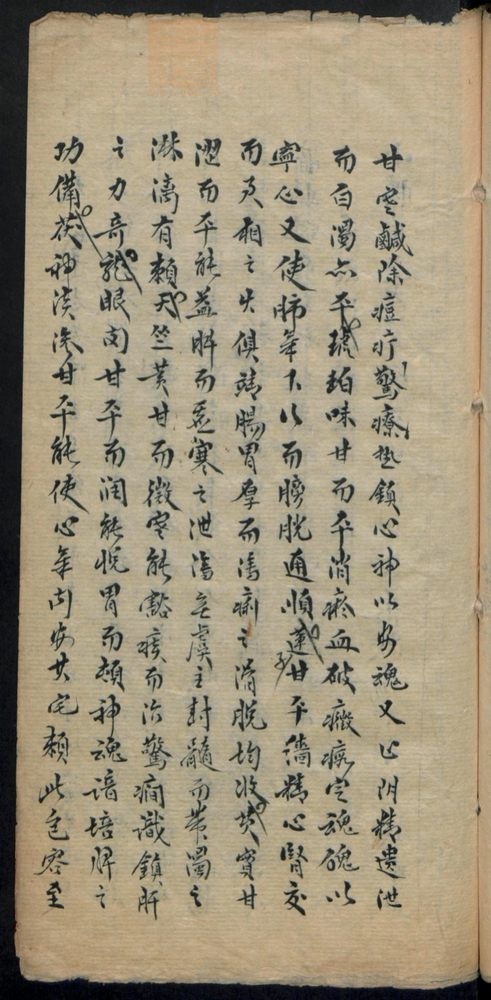 甘寒鹹除痘疔驚療熱鎮心神以安魂又止阴精遗泄
而白濁亦平琥珀味甘而平消瘀血破癥瘕定魂魄以
寧心又使肺氣下以而膀胱通順蓮子甘平濇精心腎交
而君相之火俱靖腸胃厚而瀉痢之滑脱均收芡實甘
澀而平能益脾而虛寒之泄瀉無虞主封髓而带濁之
淋漓有賴天竺黄甘而微寒能豁痰而治驚癇識鎮肝
之力奇龍眼肉甘平而润能悦胃而神魂諳培脾之
功備茯神淡滲甘平能使心氣內安其宅賴此包容至